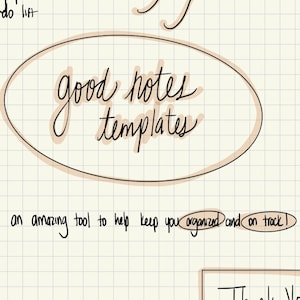 do list
good notes
templates
an amazing tool to help keep you organized and on track!